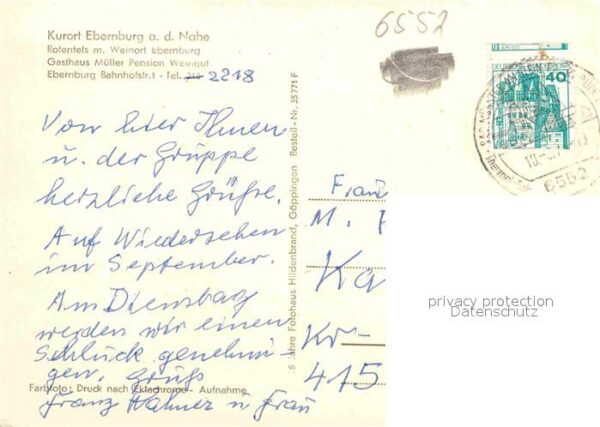 Kurort Ebernburg a. d. Nahe
Ratenfels m. Weinort Ebernburg
Gasthaus Müller Pension Weingut
Ebernburg Bahnhofstr.1 - Tel. 2218
6552
DEUTSCHE BUNDESPOST
40
6552
Von hier Ihnen
u. der Gruppe
herzliche Grüße.
Auf Wiedersehen
im September.
Am Dienstag
werden wir einen
Schluck genehmi-
gen. Gruß
Franz u Frau
Farbfoto: Druck nach Ektachrome- Aufnahme
5 Jahre Fotohaus Hildenbrand, Göppingen Bestell-Nr. 35771 F
Franz
M.
Ka
Kr-
415
privacy protection
Datenschutz